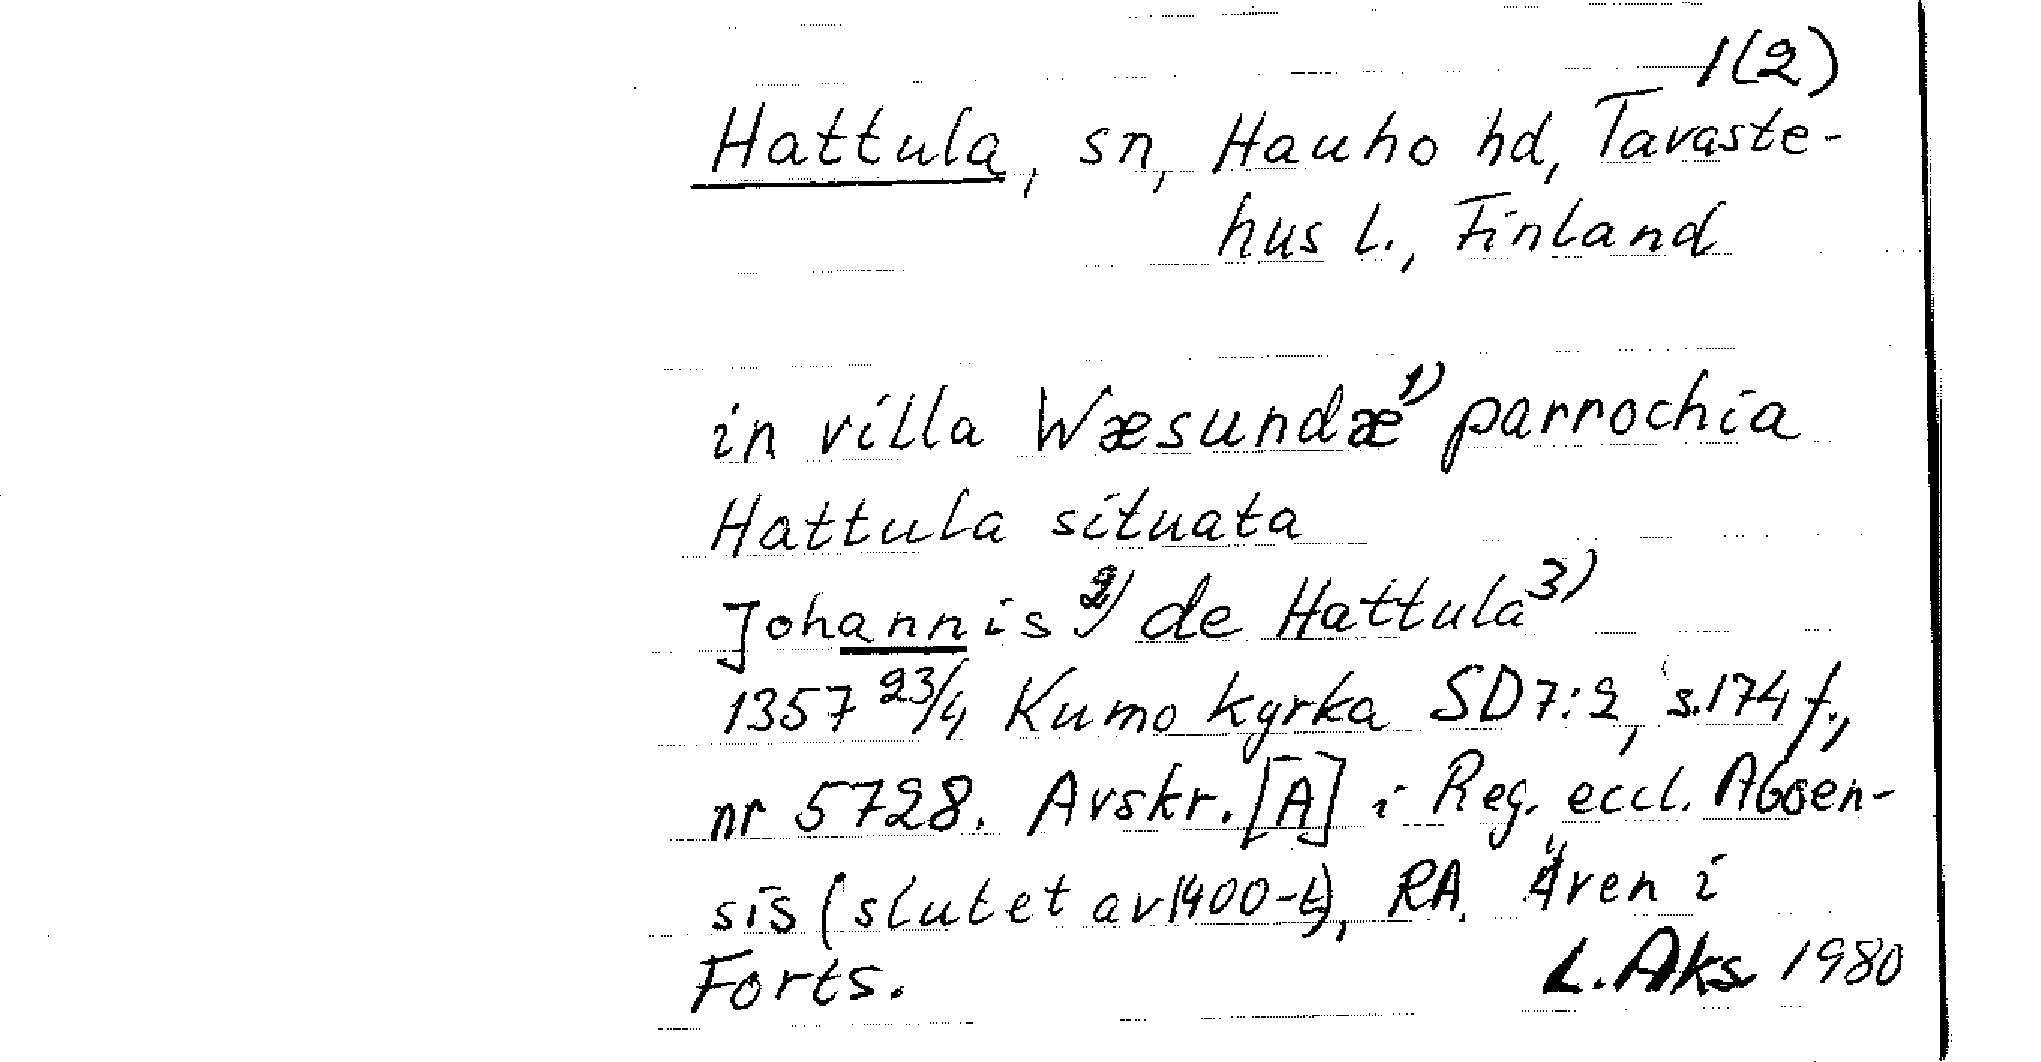 1(2)
Hattula, sn, Hauho hd, Tavaste-
hus l., Finland
in villa Wæsundæ 1) parrochia
Hattula situata
Johannis 2) de Hattula 3)
1357 23/4 Kumo kyrka SD 7:2, s.174 f.,
nr 5728. Avskr. [A] i Reg. eccl. Aboen-
sis (slutet av 1400-t), RA. Även i
Forts. L. Aks 1980